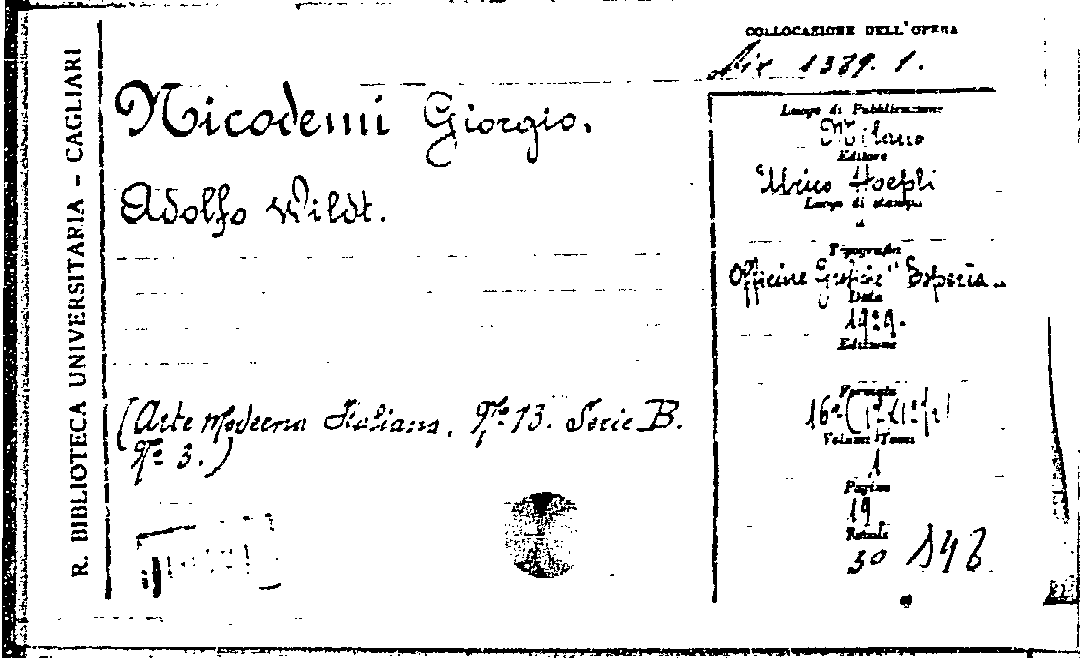 R. BIBLIOTECA UNIVERSITARIA - CAGLIARI
COLLOCAZIONE DELL'OPERA
1389. 1.
Nicodemi Giorgio.
Adolfo Wildt.
(Arte moderna Italiana. Nº 13. Serie B.
Nº 3.)
Luogo di Pubblicazione
Milano
Editore
Ulrico Hoepli
Luogo di stampa
"
Tipografia
Officine Grafiche "Esperia"
Data
1929.
Edizione
Formato
16º
Volumi Tomi
1
Pagine
19
Retule
30